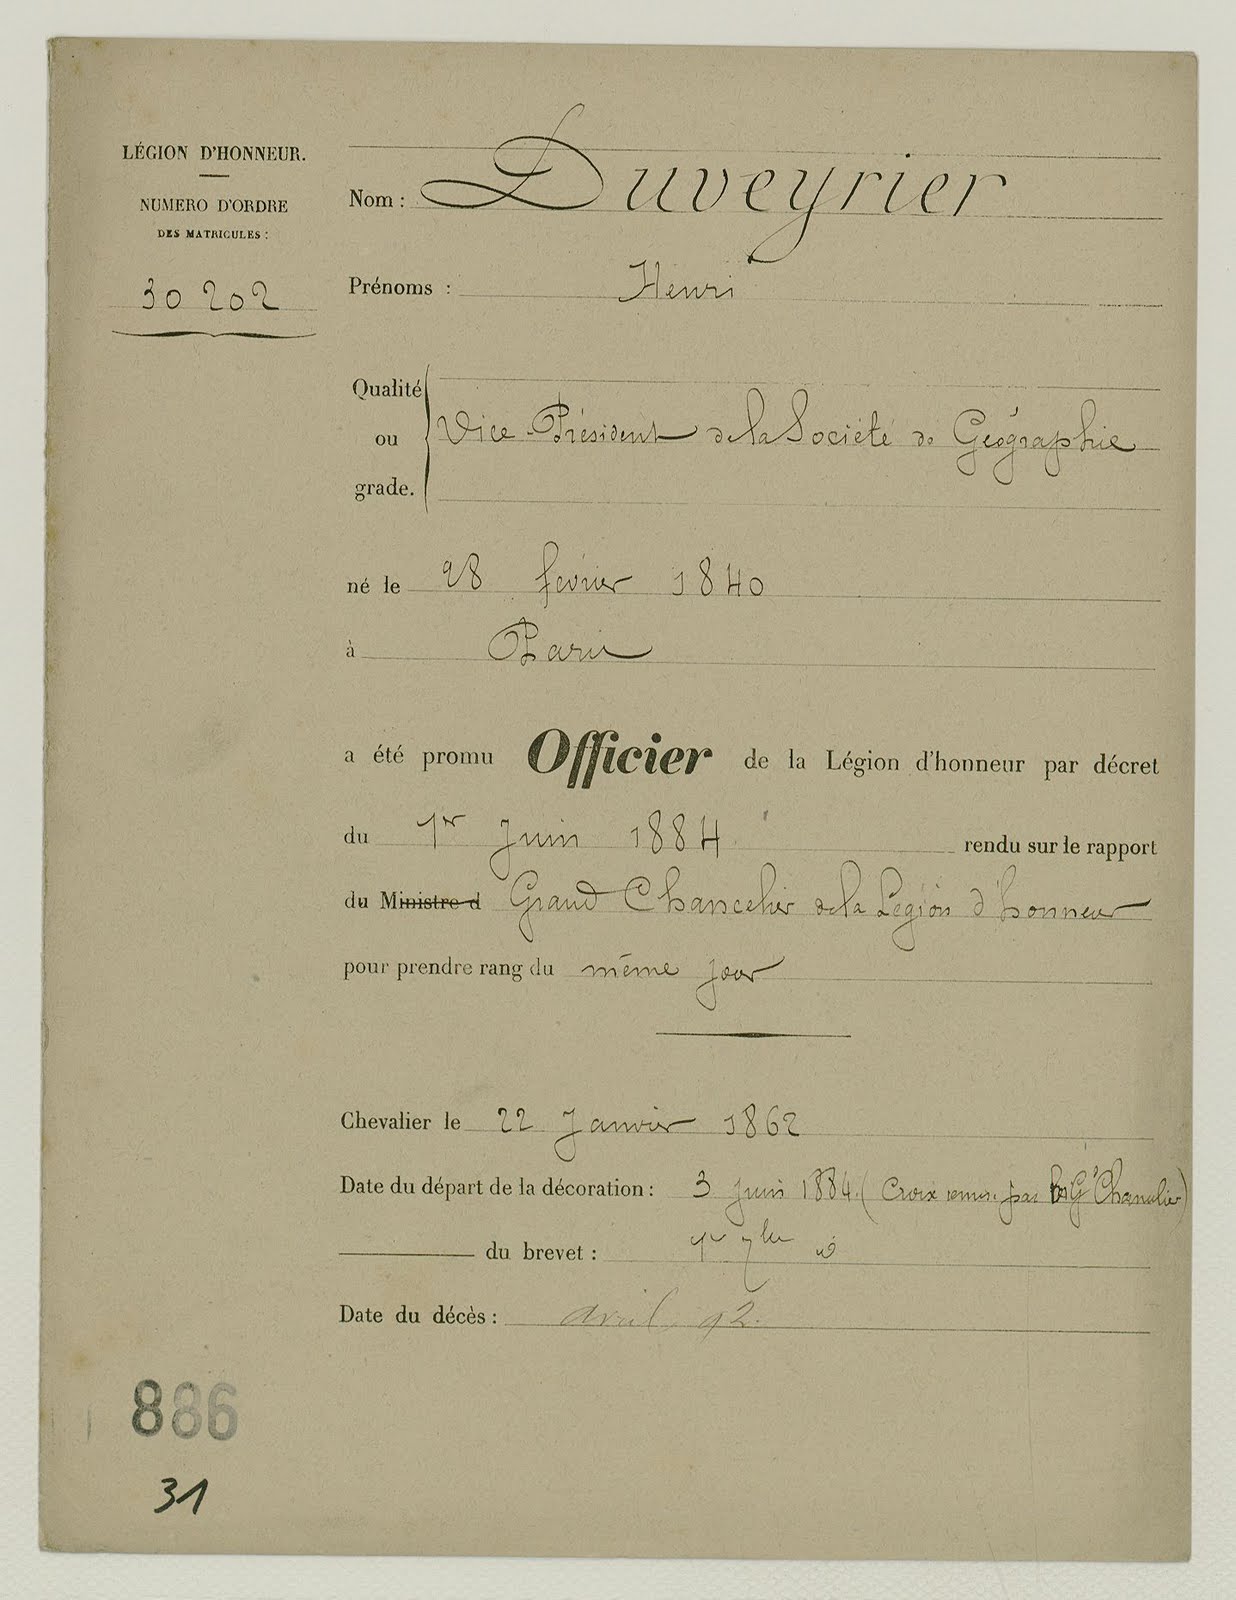 LÉGION D'HONNEUR.
NUMERO D'ORDRE
DES MATRICULES :
30 202
Nom : Duveyrier
Prénoms : Henri
Qualité
ou
grade.
Vice-Président de la Société de Géographie
né le 28 février 1840
à Paris
a été promu Officier de la Légion d'honneur par décret
du 1er Juin 1884 rendu sur le rapport
du Ministre d Grand Chancelier de la Légion d'honneur
pour prendre rang du même jour
Chevalier le 22 Janvier 1862
Date du départ de la décoration : 3 Juin 1884. (Croix par Gd Chancelier)
du brevet : 1er 7bre
Date du décès : avril 92.
886
31